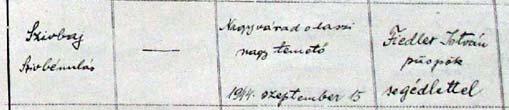 Szivbaj
Szivbénulás
—
Nagyvárad olaszi
nagy temető
1944. szeptember 15
Fiedler István
püspök
segédlettel